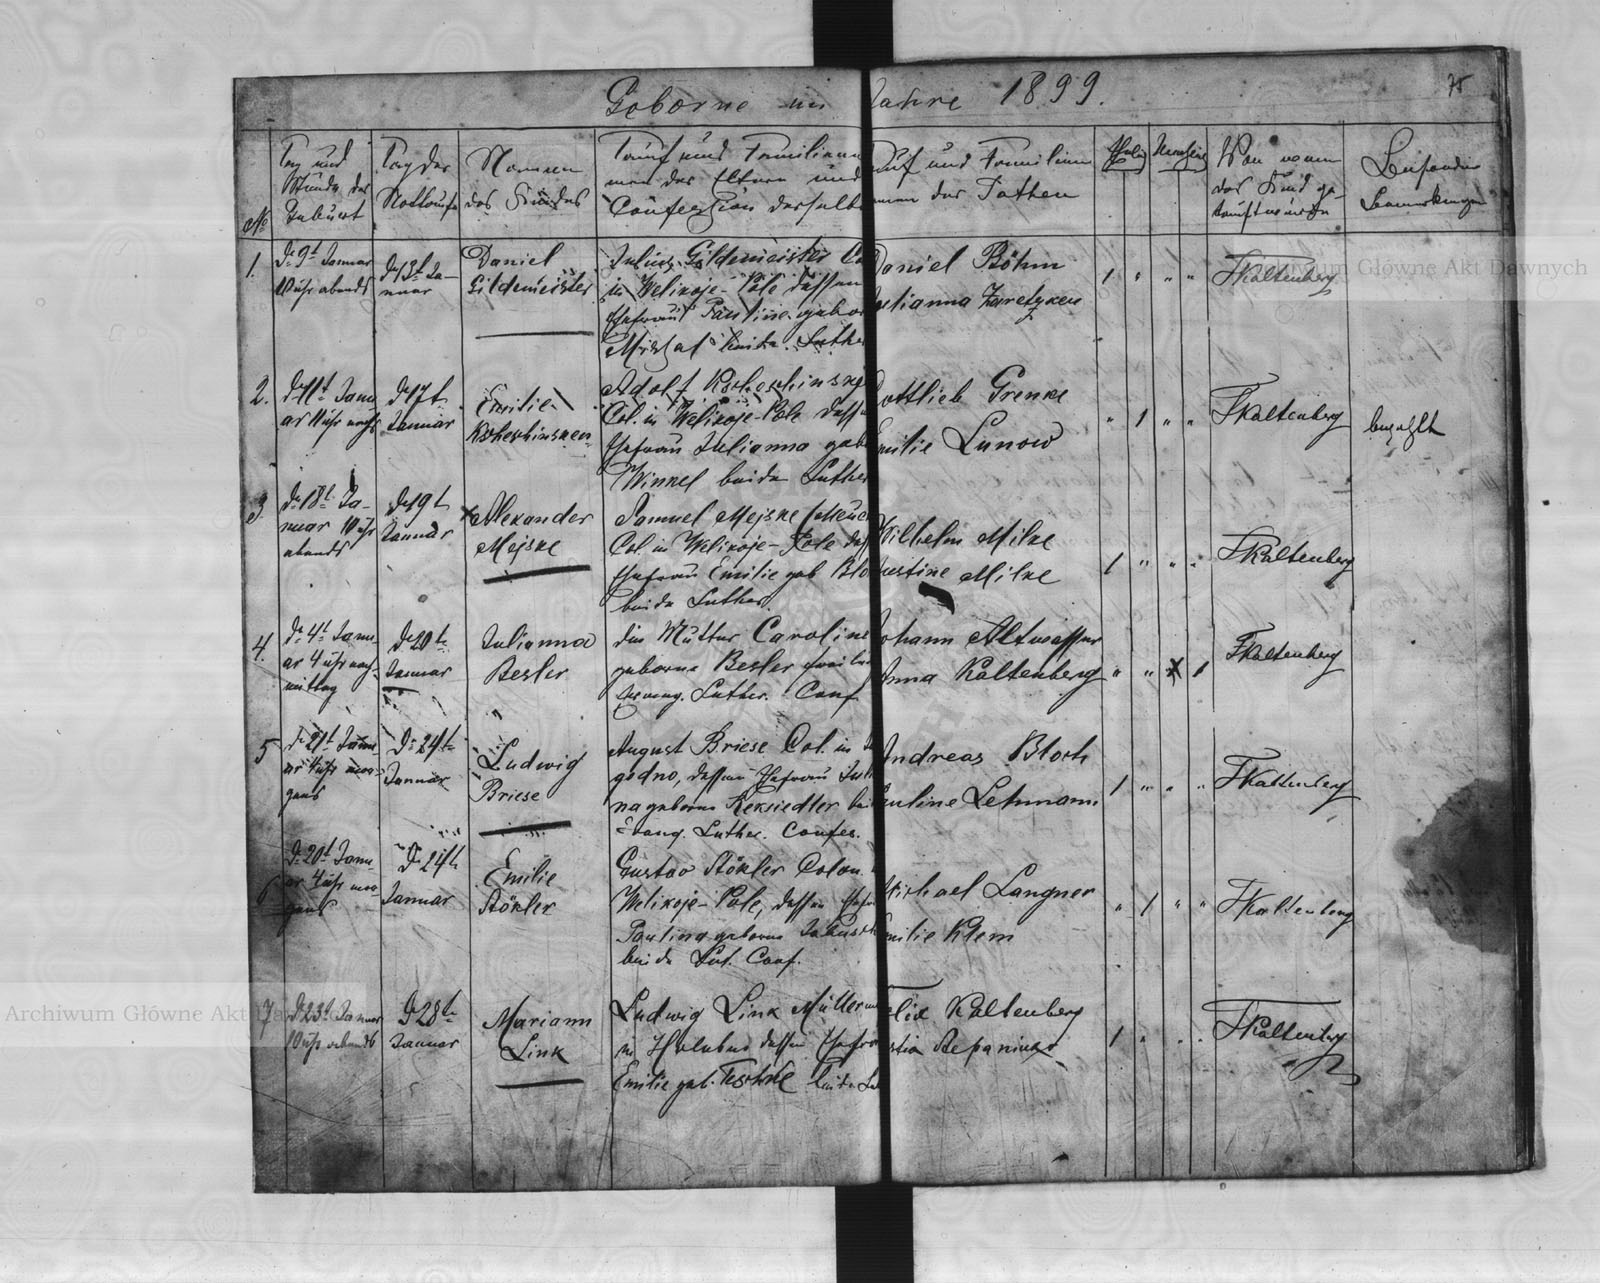 Geborne im Jahre 1899.
75
No
Tag und
Stunde der
Geburt
Tag der
Nottaufe
Namen
des Kindes
Tauf und Familienna
men der Eltern und
Confession derselbe
Tauf und Familien
namen der Pathen
Von wem
das Kind ge-
tauft worden
Laufende
Bemerkungen
1.
D. 9t Januar
10 uhr abends
D. 13t Ja-
nuar
Daniel
Gildemeister
Julius Gildemeister Co
in Welikoje-Pole dessen
Ehefrau Pauline gebor
beide Luther
Daniel Böhm
Julianna
1 " " "
FKaltenberg
2.
D. 11t Janu
ar 11 uhr nachts
D. 17t
Januar
Emilie
Koscheschinsken
Adolf Koscheschinsky
Col. in Welikoje-Pole dess
Ehefrau Julianna geb
Winkel beide Luther
Gottlieb Grenke
Emilie Lunow
" 1 " "
FKaltenberg
bezahlt
3.
D. 18t Ja-
nuar 10 uhr
abends
D. 19t
Januar
Alexander
Mejske
Samuel Mejske
Col. in Welikoje-Pole dess
Ehefrau Emilie geb Blo
beide Luther
Wilhelm Milke
Justine Milke
1 " " "
FKaltenberg
4.
D. 4t Janu-
ar 4 uhr nach-
mittag
D. 20t
Januar
Julianna
Besler
die Mutter Caroline
geborne Besler
evang. Luther. Conf
Johann Altwasser
Anna Kaltenberg
" " x 1
FKaltenberg
5
D. 21t Janu
ar 4 uhr mor-
gens
D. 24t
Januar
Ludwig
Briese
August Briese Col. in
godno, dessen Ehefrau Juli
na geborne Reksiedler bei
Evang. Luther. Confes.
Andreas Bloch
Pauline Lehmann
1 " " "
FKaltenberg
6
D. 20t Janu-
ar 4 uhr mor
gens
D. 24t
Januar
Emilie
Stökler
Gustav Stökler Colon.
Welikoje-Pole, dessen Ehefr
Paulina geborne
beide Lut. Conf.
Michael Langner
Emilie Klem
" 1 " "
FKaltenberg
7
D. 23t Januar
10 uhr abends
D. 28t
Januar
Mariann
Link
Ludwig Link Müller
in Holubne dessen Ehefra
Emilie geb. Teschke beide Lu
Felix Kaltenberg
1 " " "
FKaltenberg
Archiwum Główne Akt Dawnych
Archiwum Główne Akt Dawnych